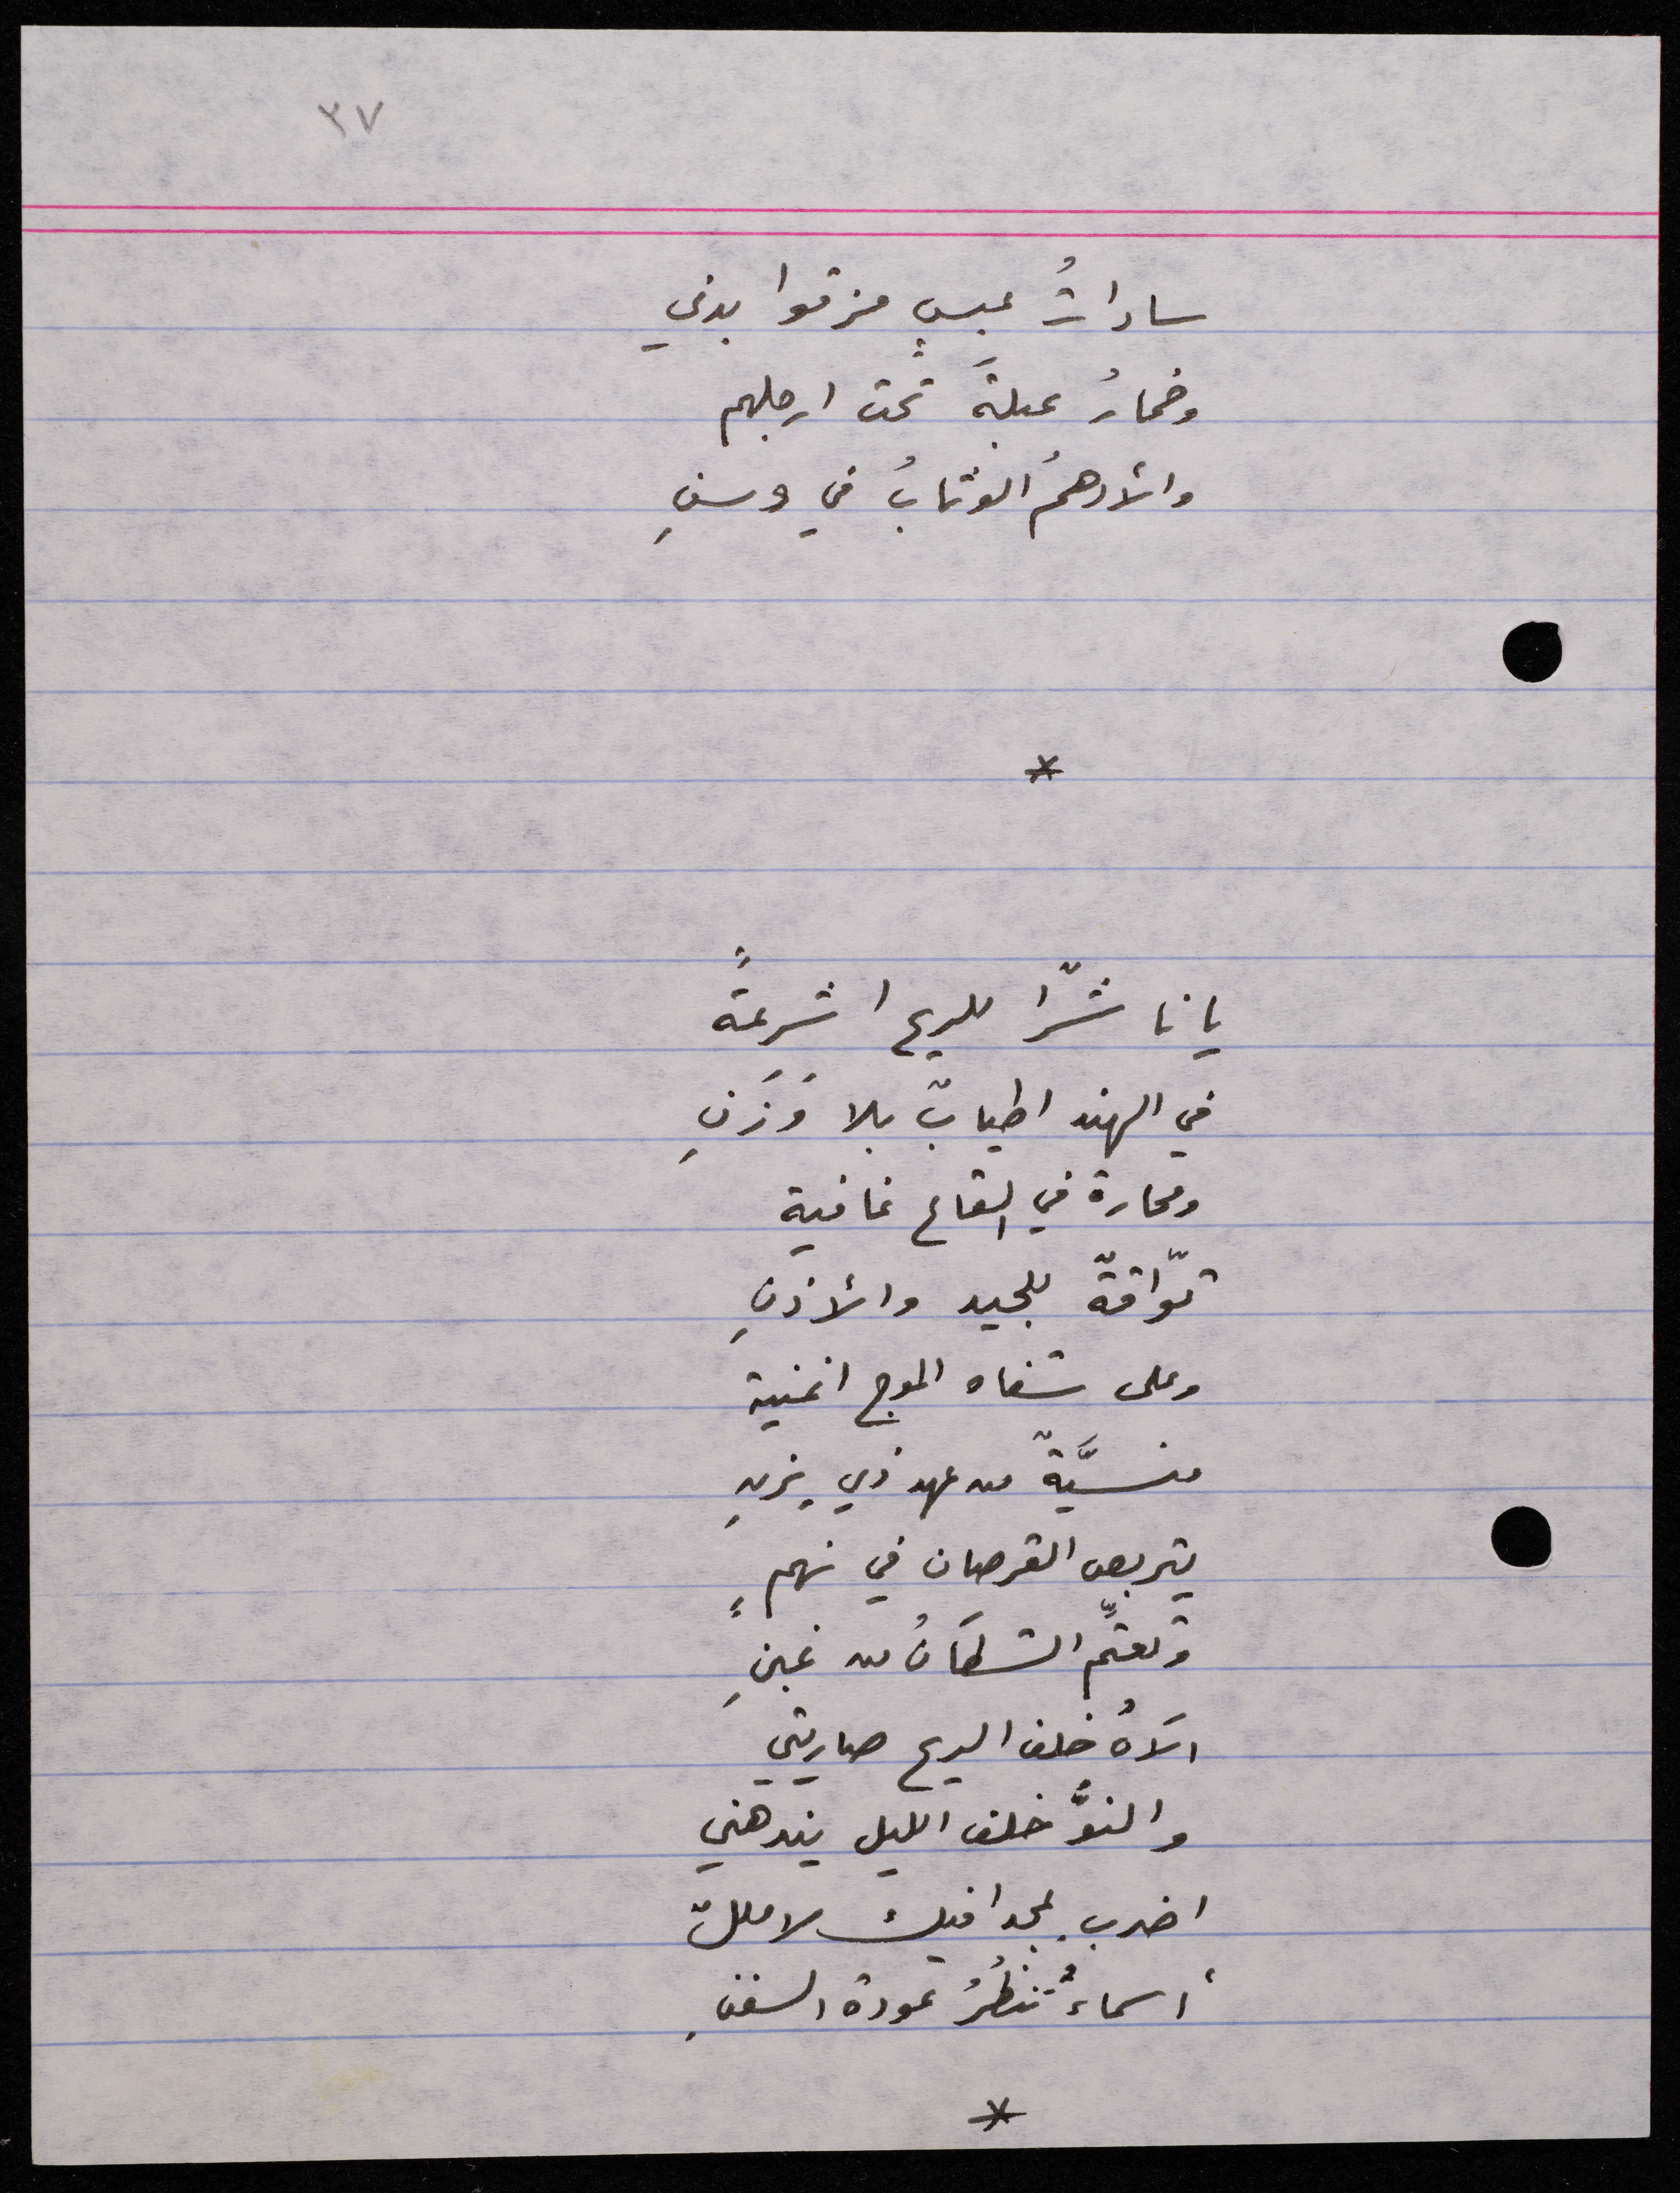 ٣٧
ساداتُ عبسٍ مزقوا بدني
وخمارُ عبلةَ تحت ارجلهم
والأدهمُ الوثابُ في وسنِ
*
يا ناشرًا للريح اشرعةً
في الهند اطيابٌ بلا وَزَنِ
ومحارة في القاع غافية
توّاقةٌ للجيد والأذنِ
وعلى شفاه الموج اغنية
منسيَّةٌ من عهد ذي يزنِ
يتربص القرصان في نهمٍ
وتعتِّم الشطآنُ من غبنِ
اوّاهُ خلف الريح صاريتي
والنوُّ خلف الليل يندهني
اضرب بمجدافيك لا مللٌ
أسماءُ تنظُرُ عودة السفنِ
*